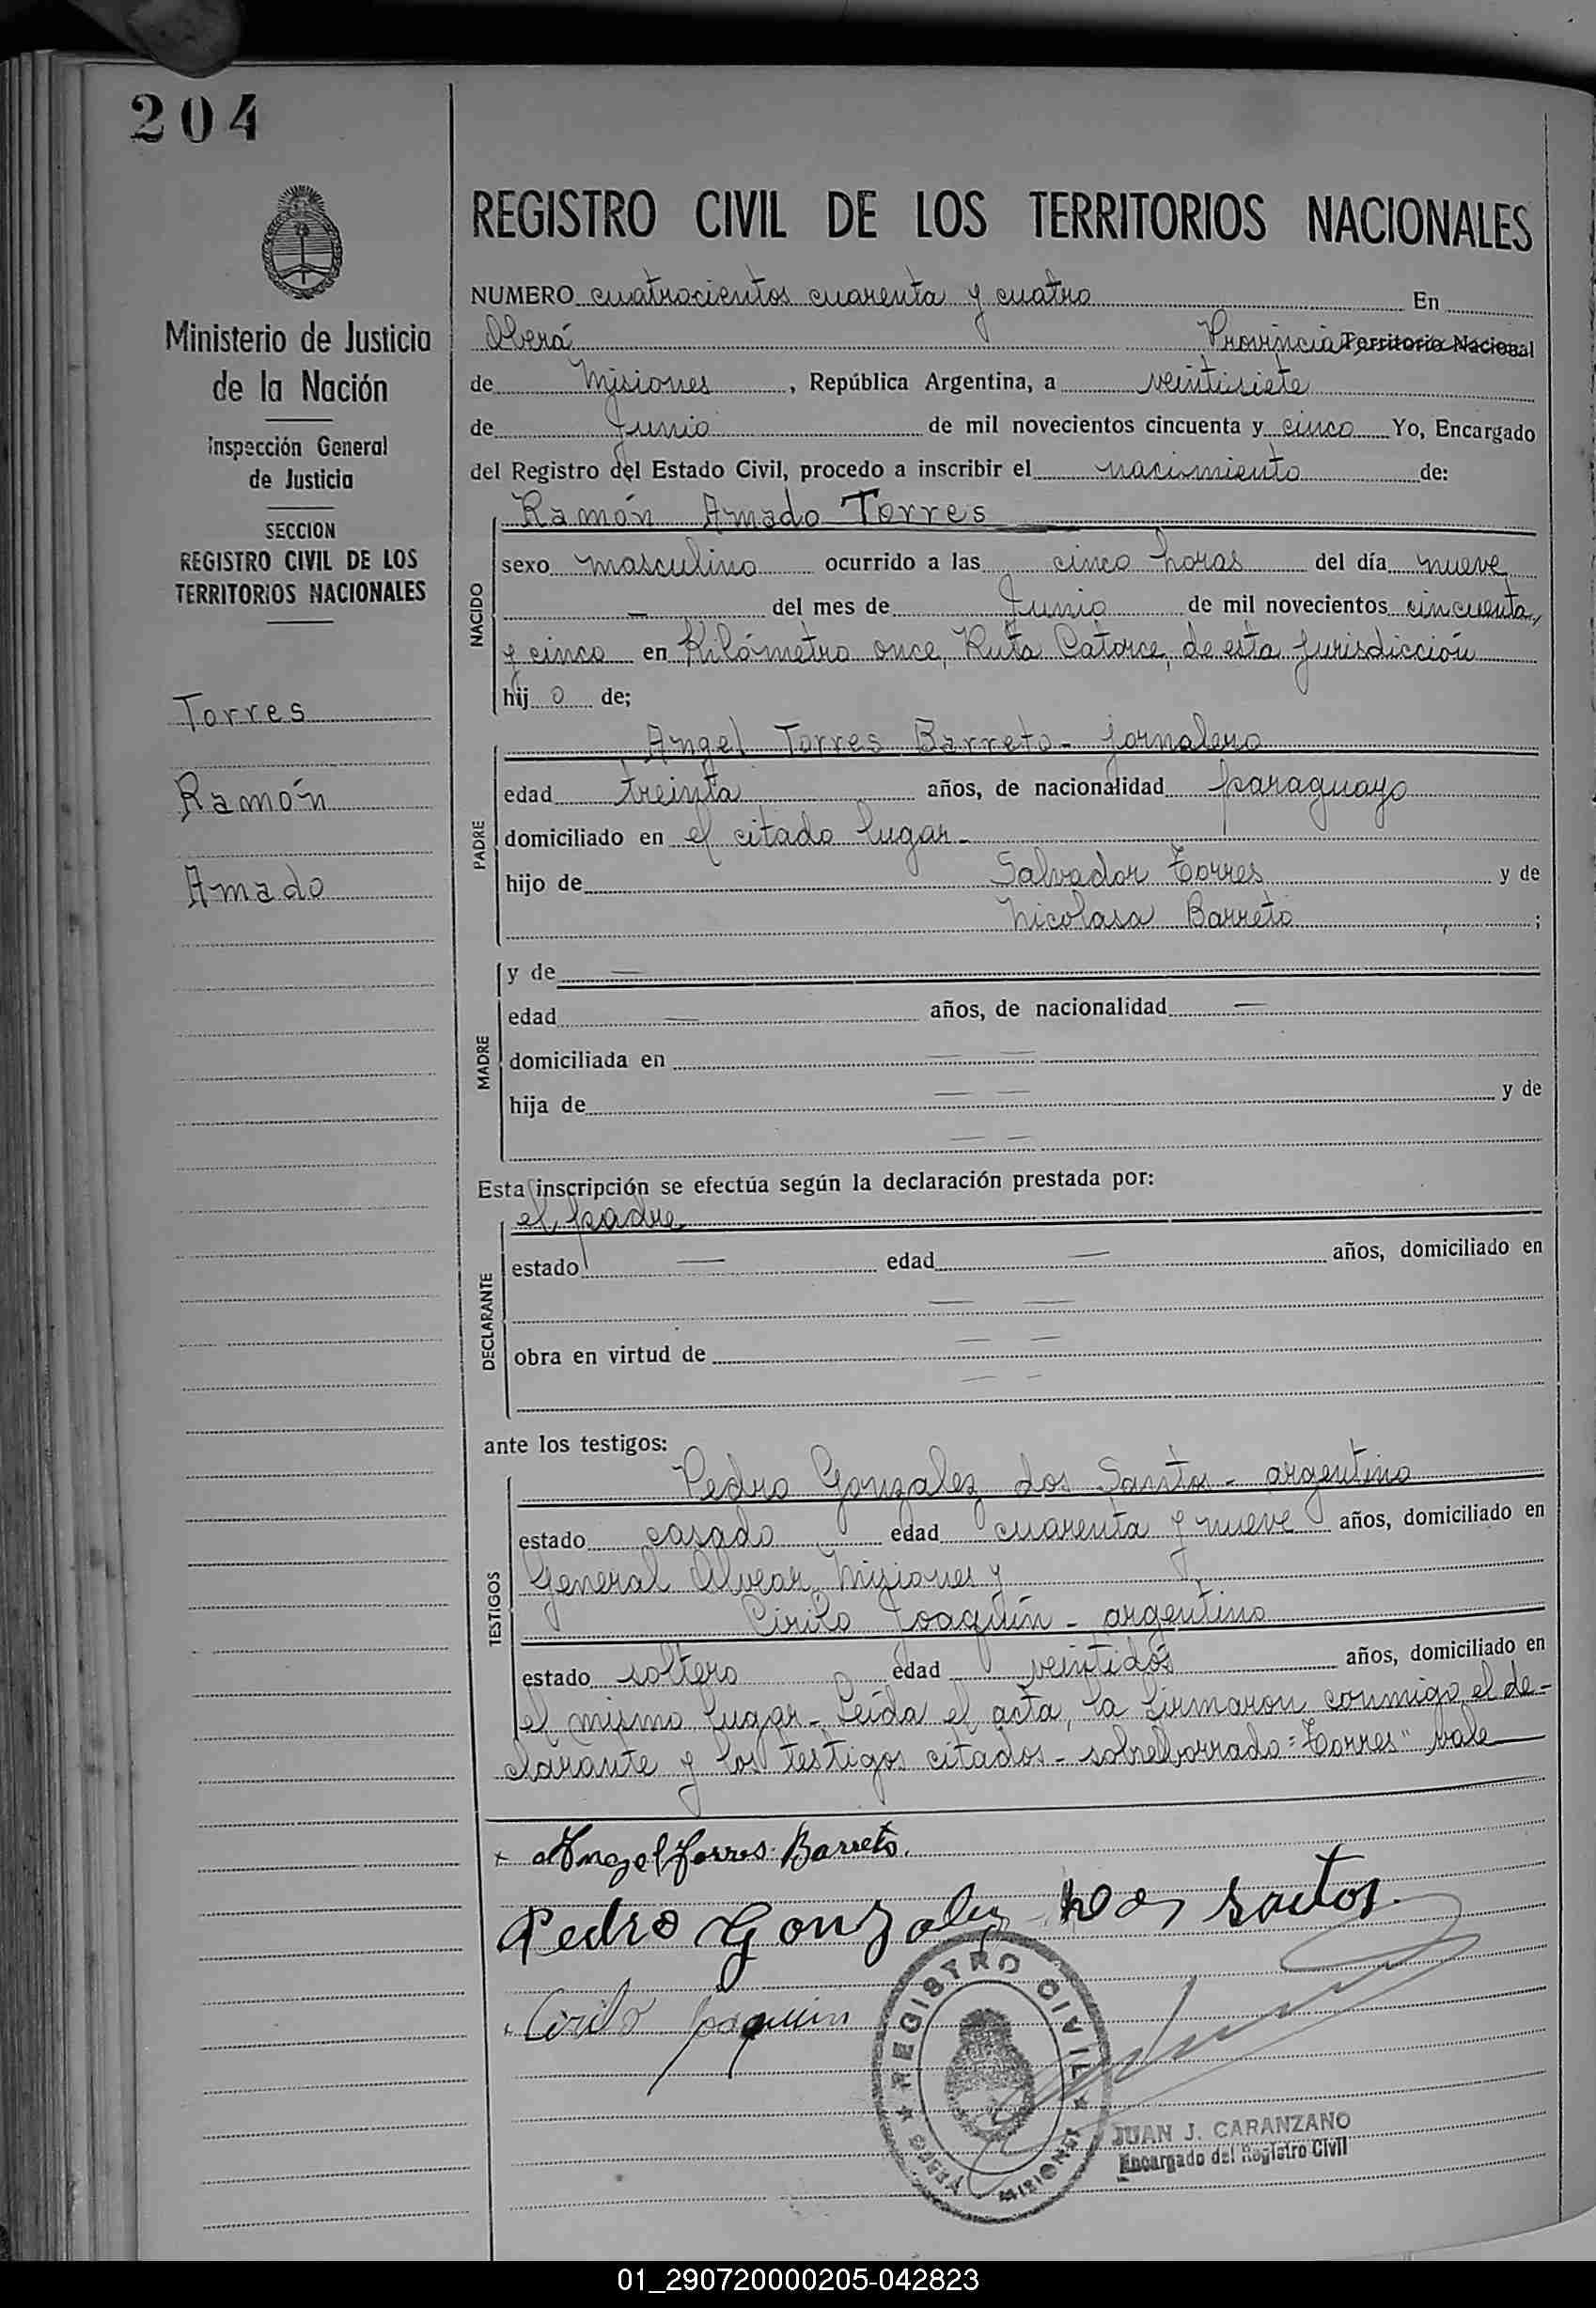 204
REGISTRO CIVIL DE LOS TERRITORIOS NACIONALES
Ministerio de Justicia
de la Nación
Inspección General
de Justicia
SECCION
REGISTRO CIVIL DE LOS
TERRITORIOS NACIONALES
Torres
Ramón
Amado
NUMERO cuatrocientos cuarenta y cuatro En
Oberá Provincia Territorio Nacional
de Misiones, República Argentina, a veintisiete
de Junio de mil novecientos cincuenta y cinco Yo, Encargado
del Registro del Estado Civil, procedo a inscribir el nacimiento de:
NACIDO
Ramón Amado Torres
sexo masculino ocurrido a las cinco horas del día nueve
— del mes de Junio de mil novecientos cincuenta
y cinco en Kilómetro once, Ruta Catorce, de esta jurisdicción
hij o de;
PADRE
Angel Torres Barreto - jornalero
edad treinta años, de nacionalidad paraguayo
domiciliado en el citado lugar -
hijo de Salvador Torres y de
Nicolasa Barreto ;
MADRE
y de —
edad — años, de nacionalidad —
domiciliada en — —
hija de — — y de
— —
Esta inscripción se efectúa según la declaración prestada por:
DECLARANTE
el padre
estado — edad — años, domiciliado en
— —
obra en virtud de — —
— —
ante los testigos:
TESTIGOS
Pedro Gonzalez dos Santos - argentino
estado casado edad cuarenta y nueve años, domiciliado en
General Alvear, Misiones y
Cirilo Joaquín - argentino
estado soltero edad veintidós años, domiciliado en
el mismo lugar - Leída el acta, la firmaron conmigo el de-
clarante y los testigos citados - sobreborrado = "Torres" vale —
Angel Torres Barreto.
Pedro Gonzalez dos santos
Cirilo Joaquin
REGISTRO CIVIL
OBERA MISIONES
JUAN J. CARANZANO
Encargado del Registro Civil
01_290720000205-042823